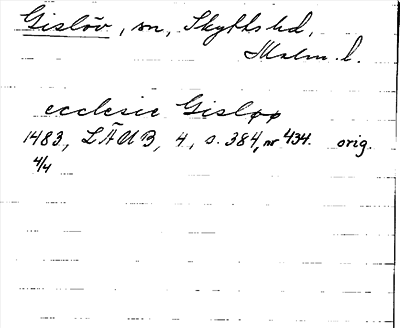 Gislöv, sn, Skytts hd,
Malm. l.
ecclesie Gisløø
1483, LÄUB, 4, s. 384, nr 434. orig.
4/4